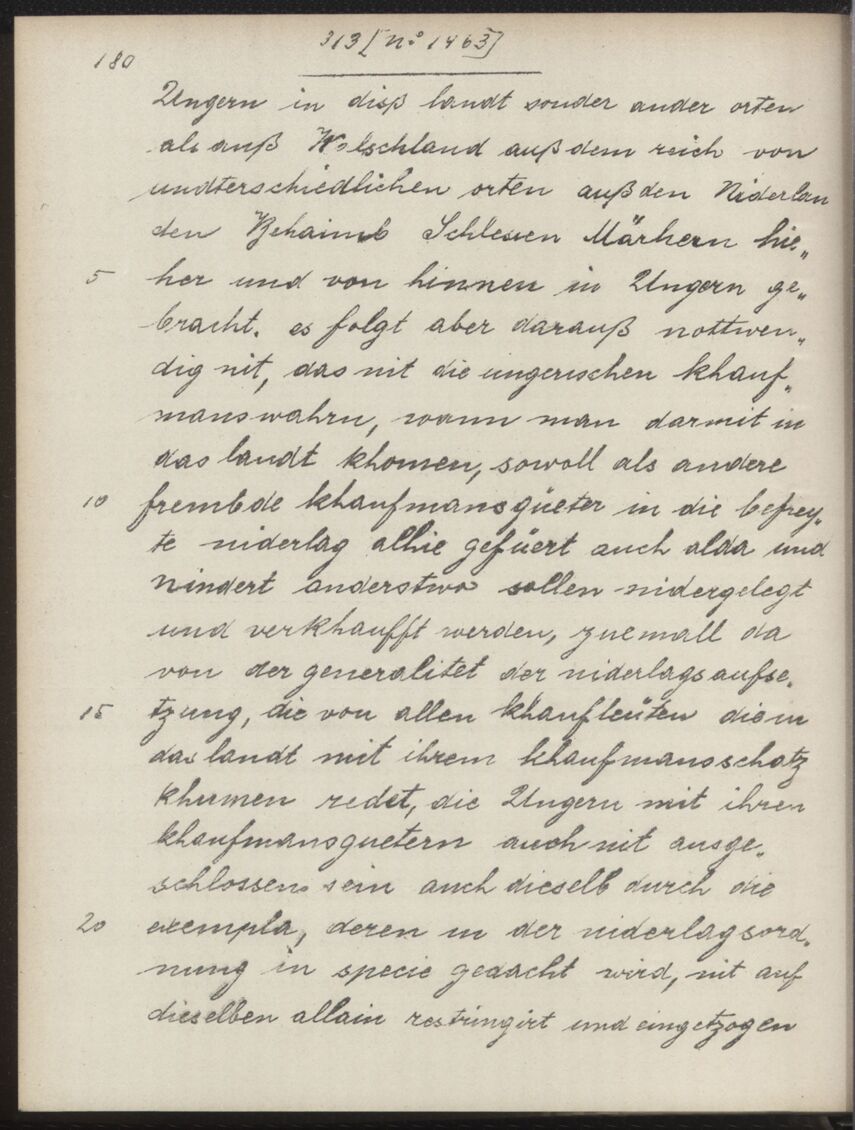 313 [Nº 1463]
180
Ungern in diß landt sonder ander orten
als auß Wolschland auß dem reich von
undterschiedlichen orten auß den Niderlan
den Behaimb Schlesien Märhern hie„
5 her und von hinnen in Ungern ge„
bracht. es folgt aber darauß nottwen„
dig nit, das nit die ungerischen khauf„
manswahrn, wann man darmit in
das landt khomen, sowoll als andere
10 frembde khaufmansgüeter in die befrey„
te niderlag alhie gefüert auch alda und
nindert anderstwo sollen nidergelegt
und verkhaufft werden, zuemall da
von der generalitet der niderlagsaufse„
15 tzung, die von allen khaufleüten die in
das landt mit ihrem khaufmansschatz
khummen redet, die Ungern mit ihren
khaufmansguetern auch nit ausge„
schlossen sein auch dieselb durch die
20 exempla, deren in der niderlagsord„
nung in specie gedacht wird, nit auf
dieselben allain restringirt und eingetzogen